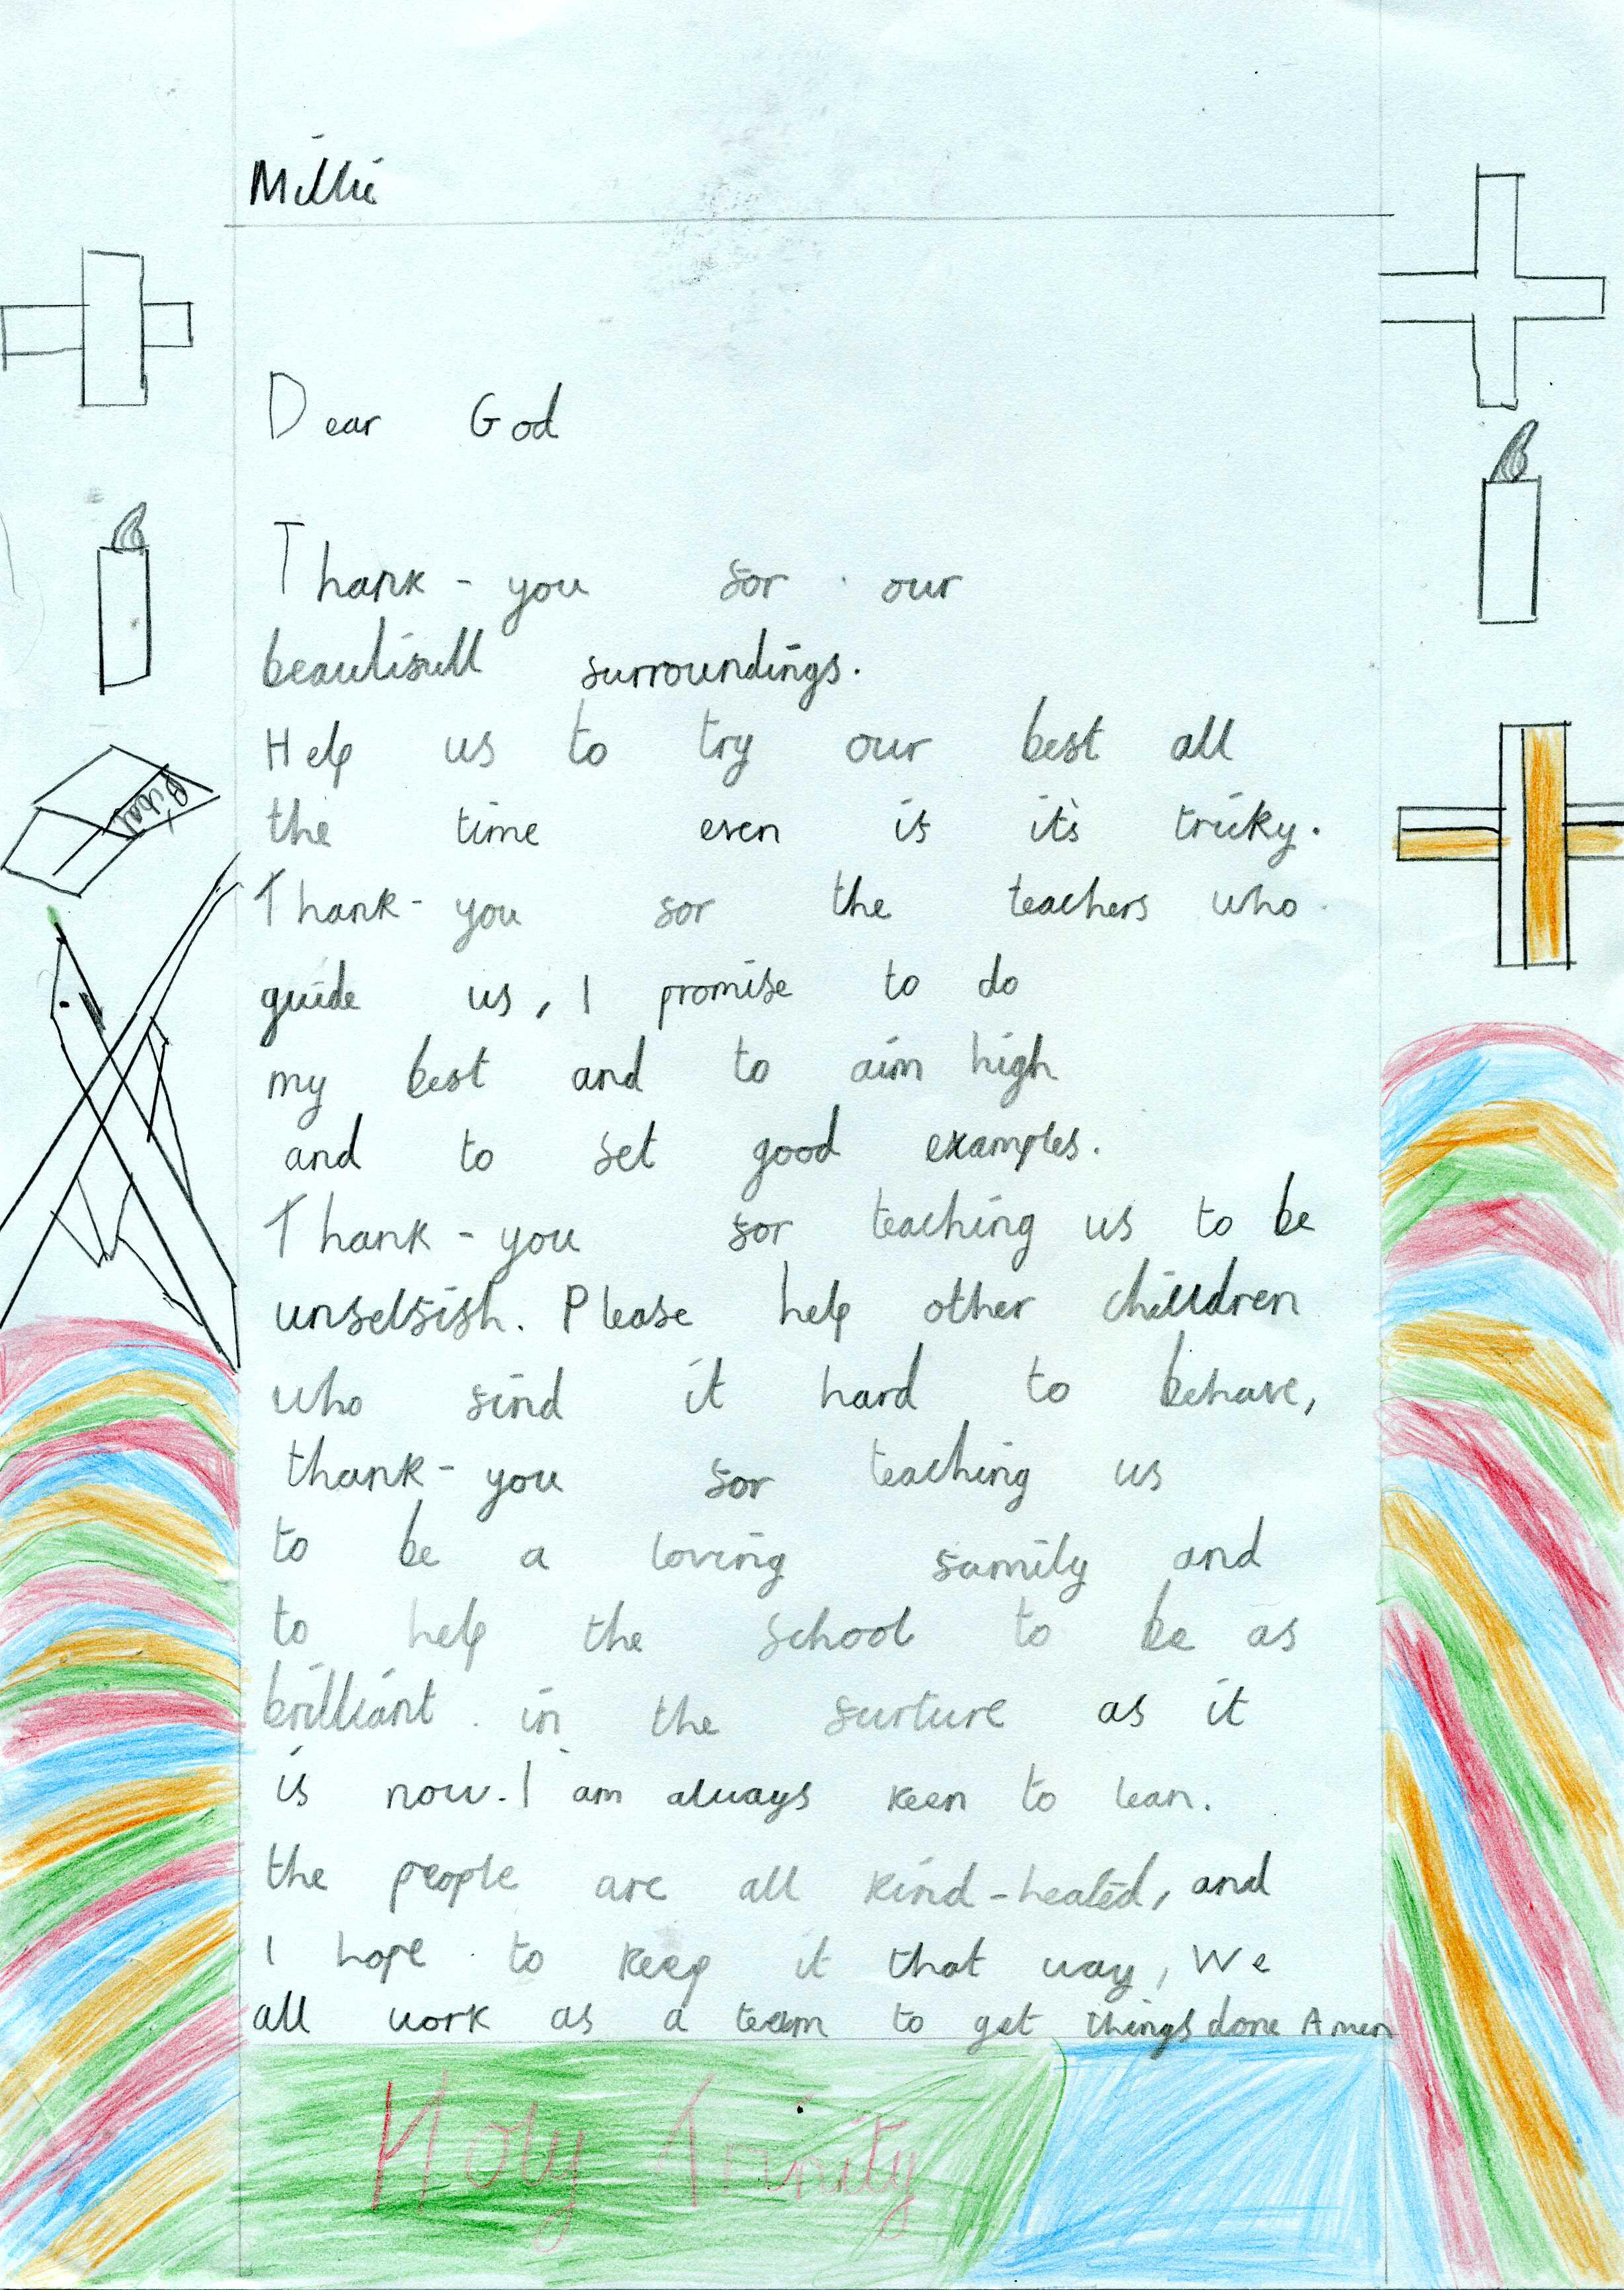 Millie
Dear God
Thank-you for our
beautifull surroundings.
Help us to try our best all
the time even if it's tricky.
Thank-you for the teachers who
guide us, I promise to do
my best and to aim high
and to set good examples.
Thank-you for teaching us to be
unselfish. Please help other chilldren
who find it hard to behave,
thank-you for teaching us
to be a loving family and
to help the school to be as
brilliant in the furture as it
is now. I am always keen to lean.
the people are all kind-heated, and
I hope to keep it that way, We
all work as a team to get things done Amen
Bibal
Holy Trinity